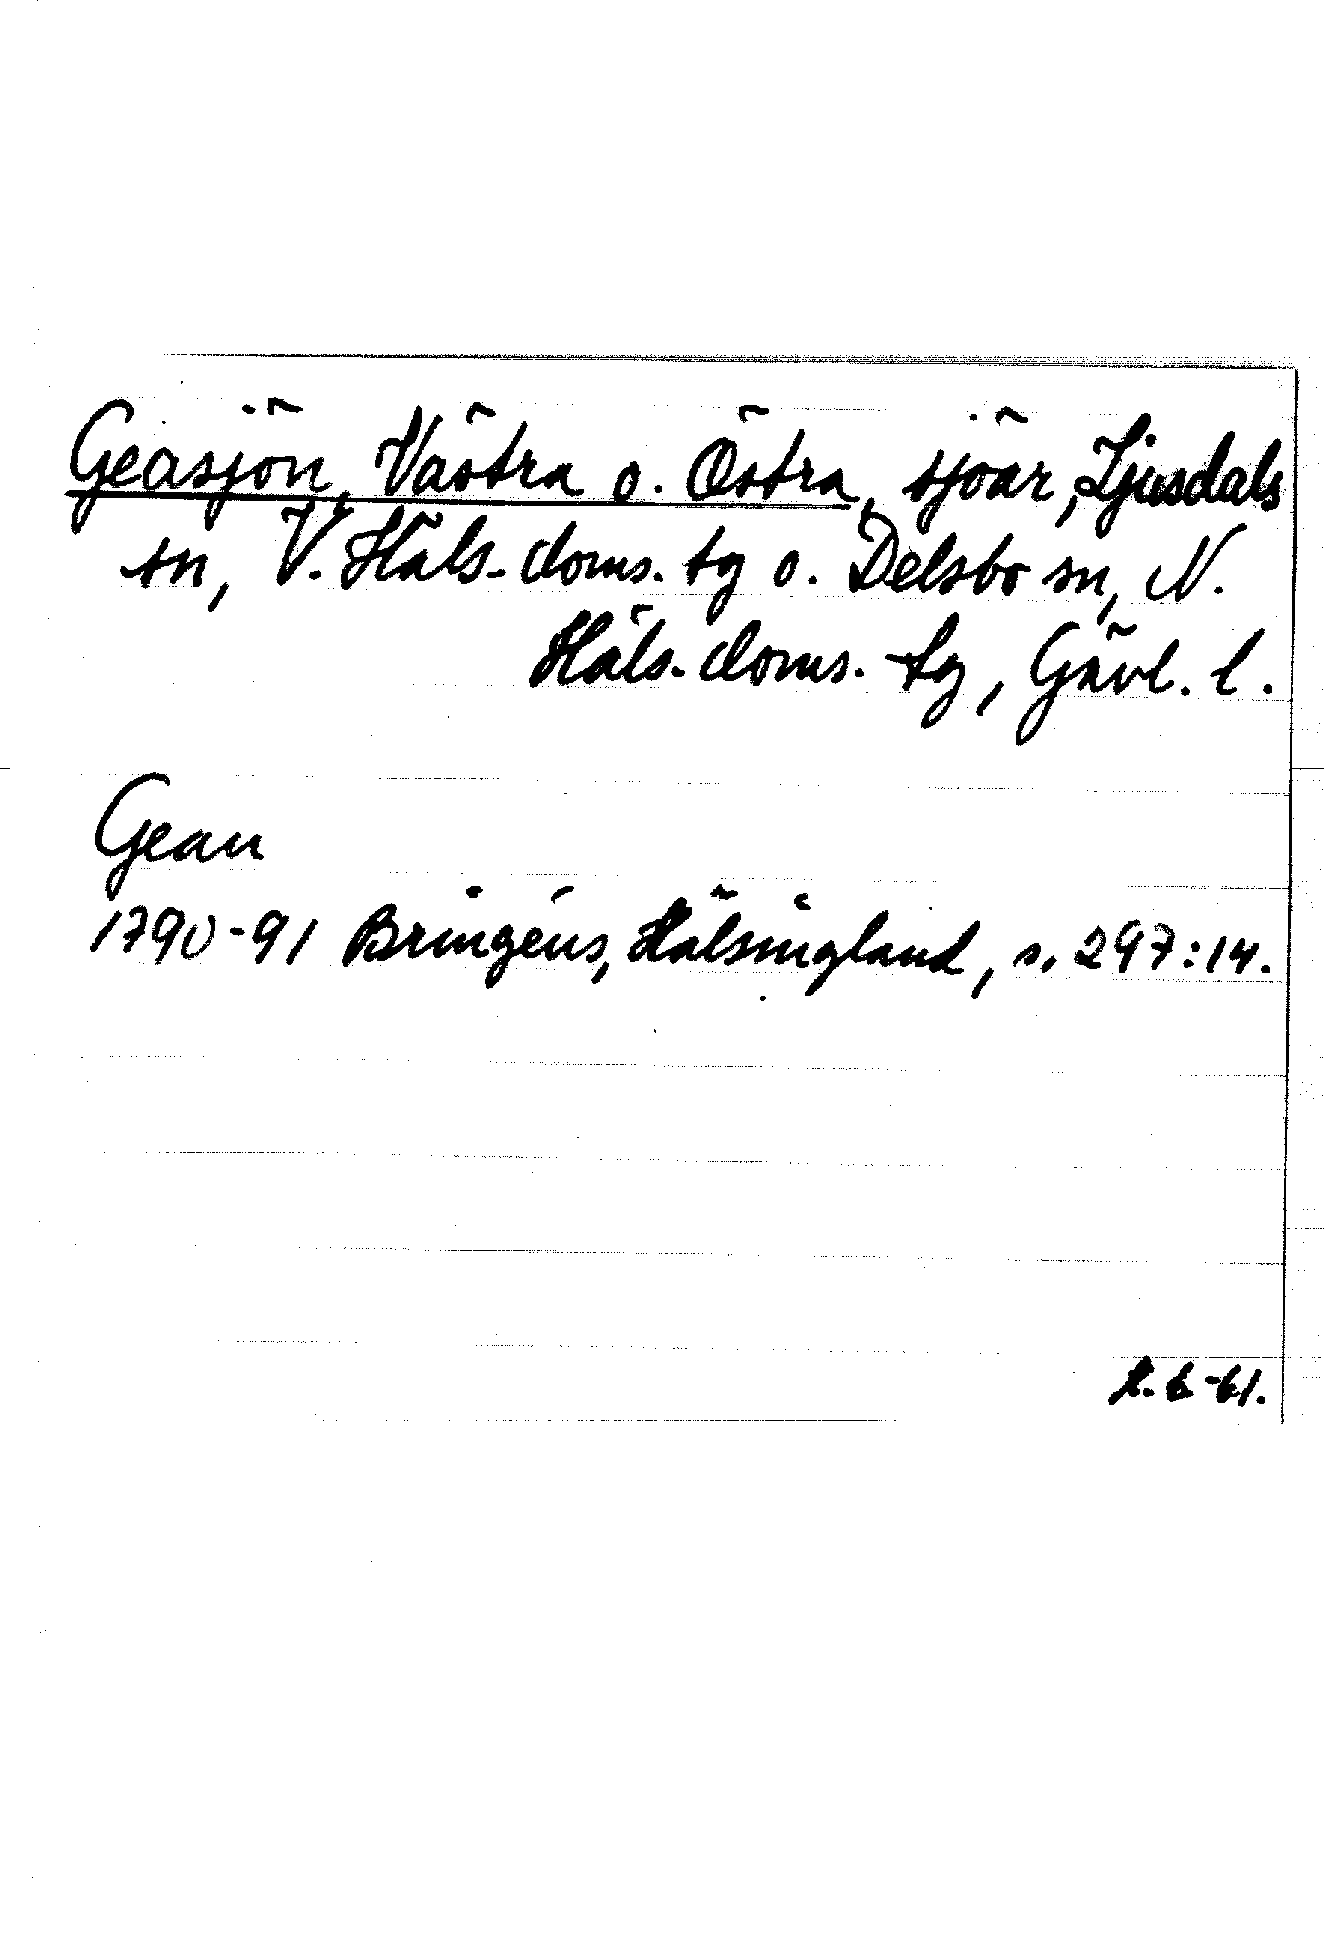 Geasjön, Västra o. Östra, sjöar, Ljusdals
sn, V. Häls. doms. tg o. Delsbo sn, N.
Häls. doms. tg, Gävl. l.
Gean
1790-91 Bringéus, Hälsingland, s. 297:14.
2.6-61.